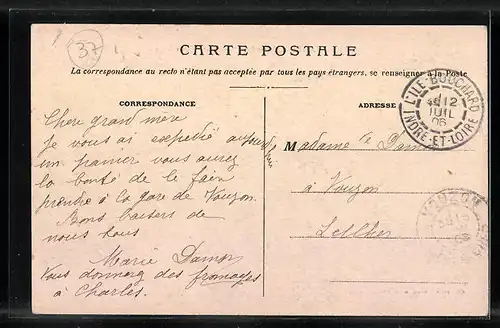 37
CARTE POSTALE
La correspondance au recto n'étant pas acceptée par tous les pays étrangers, se renseigner à la Poste
CORRESPONDANCE
Chere grand mère
je vous ai expedié aujourd'hui
un panier vous aurez
la bonté de le fair
prendre à la gare de Vouzon.
Bons baisers de
nous tous
Marie Damon
Vous donnerez des fromages
à Charles.
ADRESSE
Madame
à Vouzon
L'ILE-BOUCHARD
12
JUIL
06
INDRE-ET-LOIRE
VOUZON